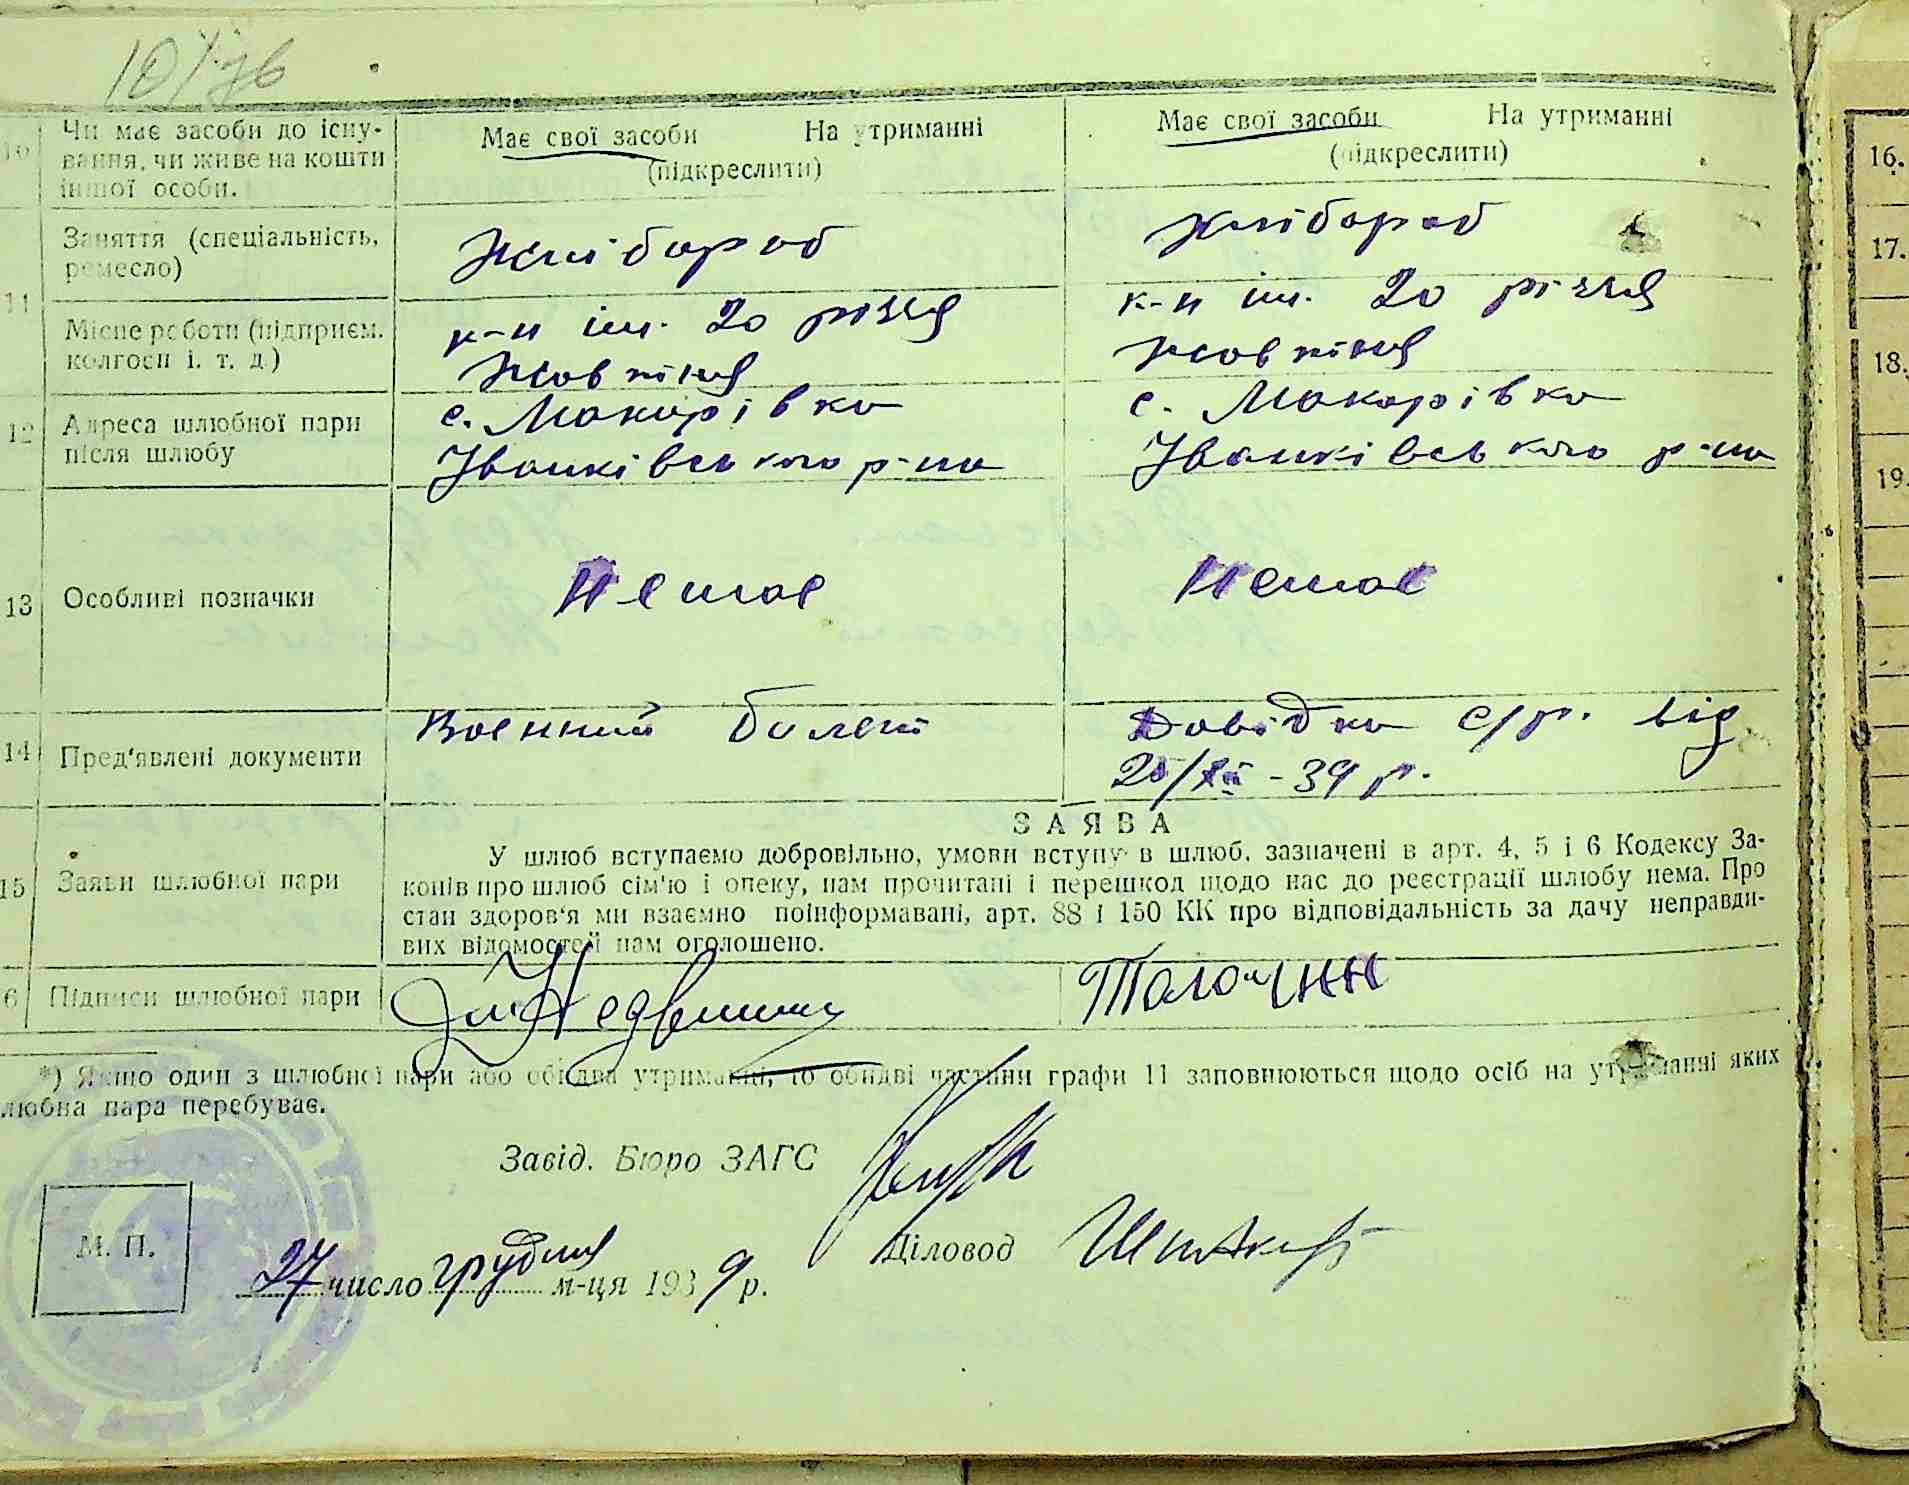 10 Чи має засоби до існу-
вання, чи живе на кошти
іншої особи.
Має свої засоби На утриманні
(підкреслити)
Має свої засоби На утриманні
(підкреслити)
11 Заняття (спеціальність,
ремесло)
Хлібороб
Хлібороб
Місце роботи (підприєм.
колгосп і. т. д.)
к-п ім. 20 річчя
Жовтня
к-п ім. 20 річчя
Жовтня
12 Адреса шлюбної пари
після шлюбу
с. Макарівка
Іванківського р-на
с. Макарівка
Іванківського р-на
13 Особливі позначки
Немає
Немає
14 Пред'явлені документи
Военний билет
Довідка с/р. від
25/XII-39 р.
ЗАЯВА
15 Заяви шлюбної пари
У шлюб вступаємо добровільно, умови вступу в шлюб, зазначені в арт. 4, 5 і 6 Кодексу За-
конів про шлюб сім'ю і опеку, нам прочитані і перешкод щодо нас до реєстрації шлюбу нема. Про
стан здоров'я ми взаємно поінформавані, арт. 88 і 150 КК про відповідальність за дачу неправди-
вих відомостей нам оголошено.
6 Підписи шлюбної пари
Толочин
*) Якщо один з шлюбної пари або обидва утриманці, то обидві частини графи 11 заповнюються щодо осіб на утриманні яких
любна пара перебуває.
Завід. Бюро ЗАГС
М. П.
Діловод
27 число грудня м-ця 1939 р.
16.
17.
18.
19.